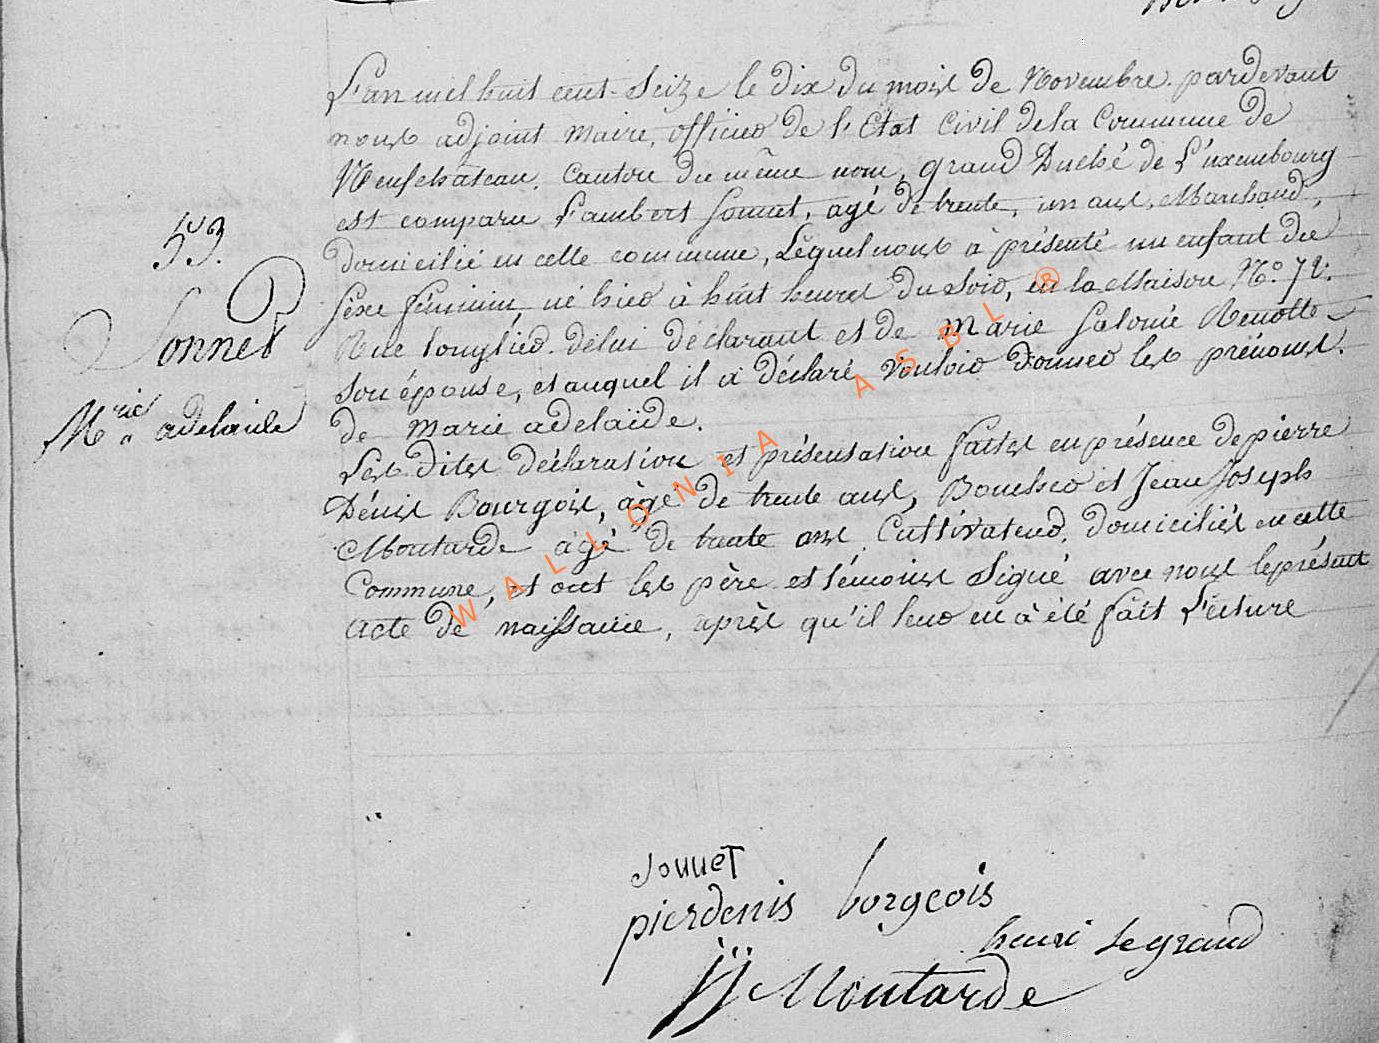 L'an mil huit cent Seize le dix du mois de Novembre. pardevant
nous adjoint maire, officier de l'Etat Civil dela Commune de
Neufchateau. Canton du même nom, grand Duché de Luxembourg
est comparu Lambert Sonnet, agé de trente, un ans, Marchand,
53.
domicilié en cette commune, Lequel nous à présenté un enfant du
Séxe féminin, né hier à huit heures du Soir, en la Maison No. 72.
Sonnet
Rue longlier. delui déclarant et de Marie Salomé Renotte
Son épouse, et auquel il a déclaré vouloir donner les prénoms.
Mrie adelaide
de Marie adelaïde.
Les dites déclaration et présentation faites en présence de pierre
Dénis Bourgois, âgé de trente ans, Boucher et Jean Joseph
Moutarde agé de trente ans Cultivateur, domiciliés en cette
Commune, et ont les père et témoins Signé avec nous leprésent
Acte de naissance, après qu'il leur en à été fait Lecture
Sonnet
pierdenis borgeois
henri Legrand
JJ Moutarde
WALLONIA ASBL ®